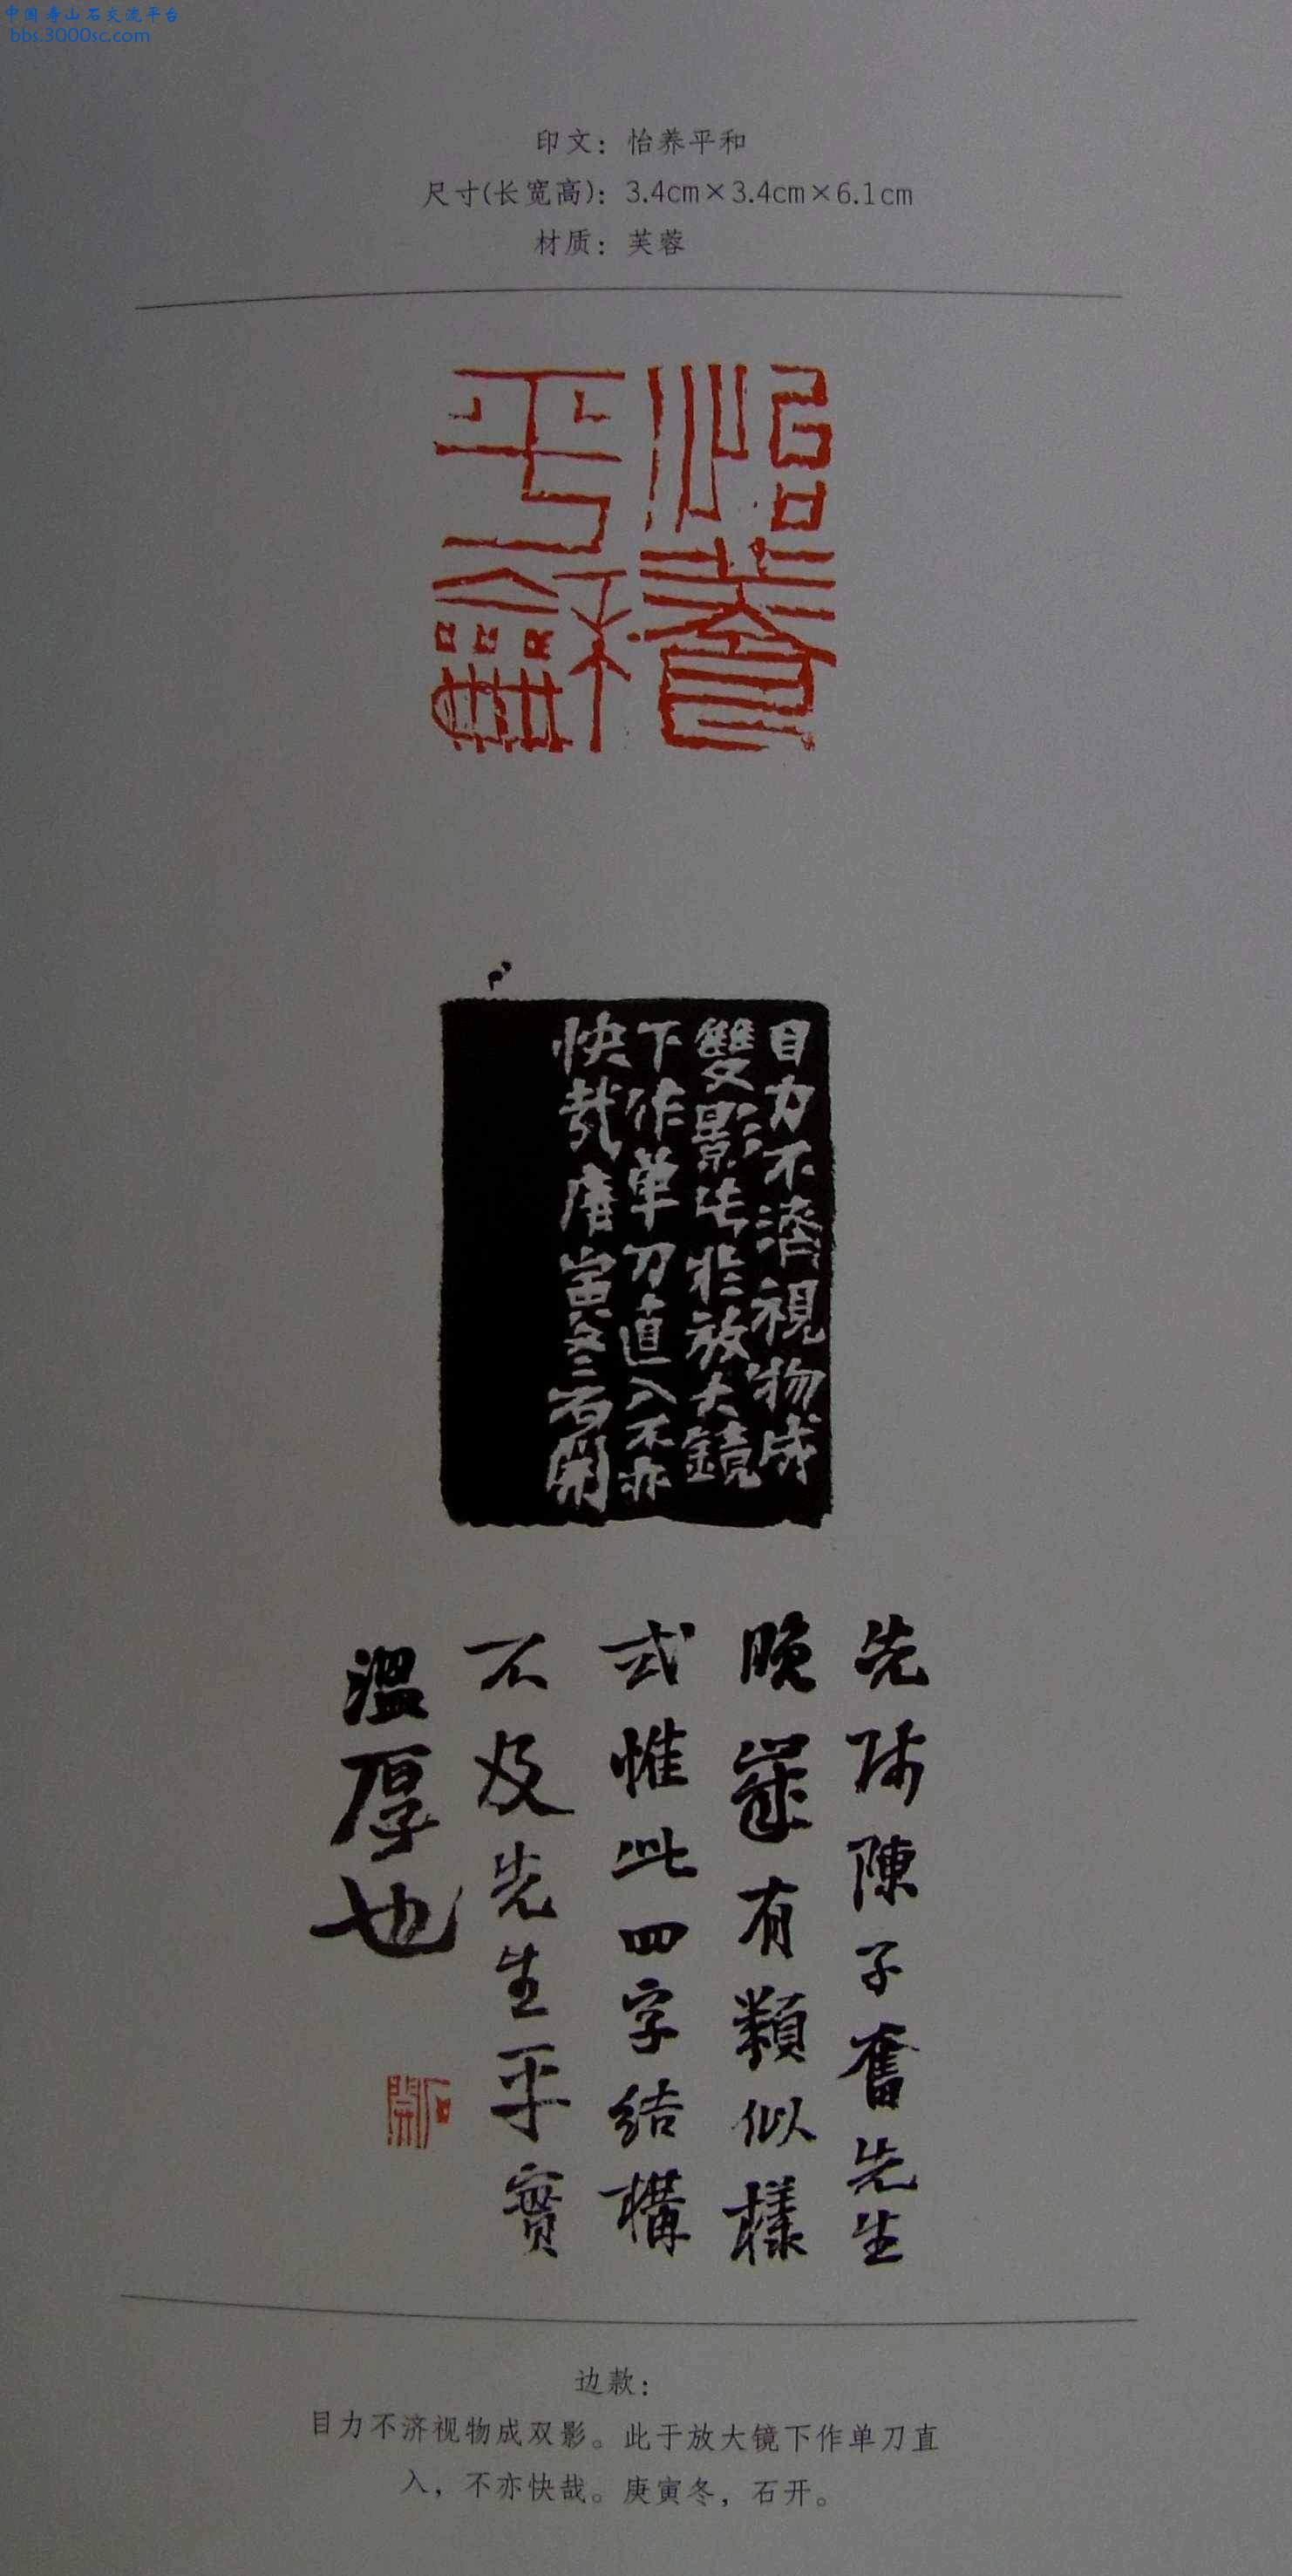 中国寿山石交流平台
bbs.3000sc.com
印文：怡养平和
尺寸(长宽高)：3.4cm×3.4cm×6.1cm
材质：芙蓉
怡養
平龢
目力不濟視物成
雙影此於放大鏡
下作单刀直入不亦
快哉庚寅冬石開
先師陳子奮先生
晚歲有類似樣
式惟此四字結構
不及先生平實
溫厚也
石開
边款：
目力不济视物成双影。此于放大镜下作单刀直
入，不亦快哉。庚寅冬，石开。